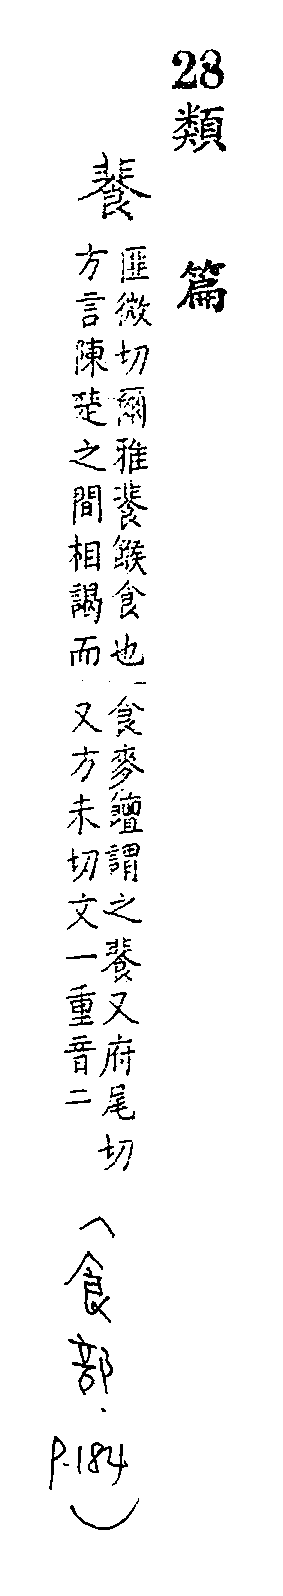 28類 篇
餥
匪微切爾雅餥餱食也
方言陳楚之間相謁而
食麥饘謂之餥又府尾切
又方未切文一重音二
(食部. P.184)